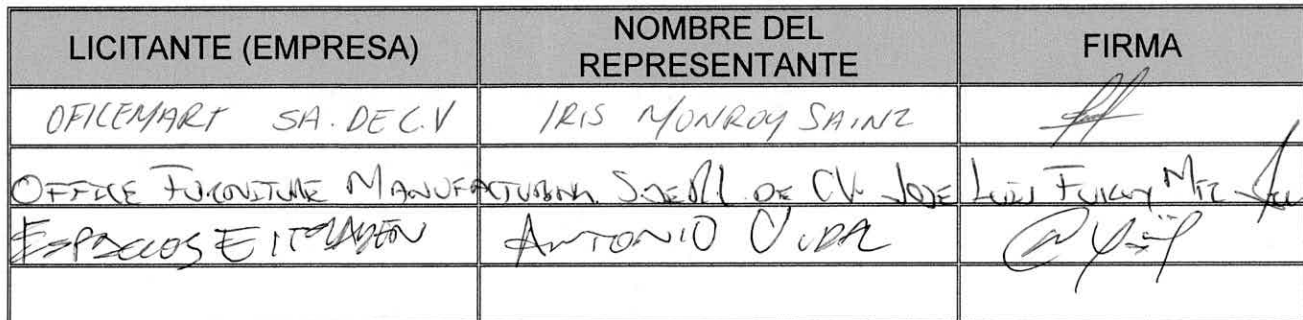 LICITANTE (EMPRESA) NOMBRE DEL REPRESENTANTE FIRMA
OFICEMART SA. DE C.V IRIS MONROY SAINZ
OFFICE FURNITURE MANUFACTURING S. DE RL DE CV. JOSE LUIS
ESPACIOS E IMAGEN ANTONIO VIDAL